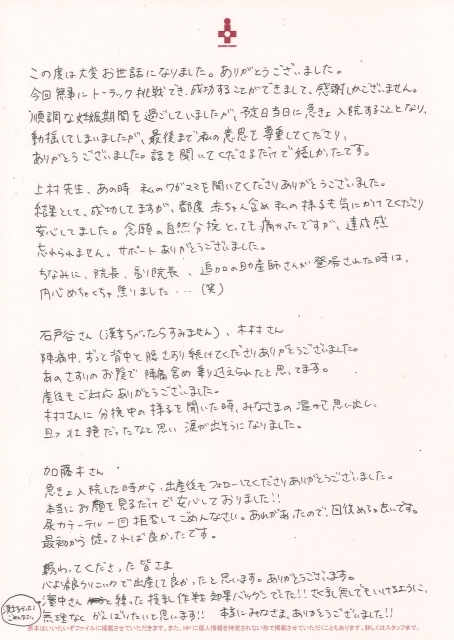 この度は大変お世話になりました。ありがとうございました。
今回無事にトーラック挑戦でき、成功することができまして、感謝しかございません。
順調な妊娠期間を過ごしていましたが、予定日当日に急きょ入院することとなり、
動揺してしまいましたが、最後まで私の意思を尊重してくださり、
ありがとうございました。話を聞いてくださるだけで嬉しかったです。
上村先生、あの時 私のワガママを聞いてくださりありがとうございました。
結果として、成功してますが、都度 赤ちゃん含め 私の様子も気にかけてくださり
安心してました。念願の自然分娩、とっても痛かったですが、達成感
忘れられません。サポートありがとうございました。
ちなみに、院長、副院長、追加の助産師さんが登場された時は、
内心めちゃくちゃ焦りました...(笑)
石戸谷さん(漢字ちがったらすみません)、木村さん
陣痛中、ずっと背中と腰さすり続けてくださりありがとうございました。
あのさすりのお陰で 陣痛含め乗り越えられたと思ってます。
産後もご対応ありがとうございました。
木村さんに分娩中の様子を聞いた時、みなさまの温かさ思い出し、
且つ壮絶だったなと思い 涙が出そうになりました。
加藤木さん
急きょ入院した時から、出産後もフォローしてくださりありがとうございました。
本当にお顔を見るだけで安心しておりました!!
尿カテーテル一回拒否してごめんなさい。あれがあったので、回復めっちゃ早いです。
最初から従ってれば良かったです。
携わってくださった皆さま
心よりクリニックで出産して良かったと思います。ありがとうございます。
濱中さんと練った授乳作戦 効果バツグンでした!! さく乳無しでもいけるように、
無理なくがんばりたいと思います!! 本当にみなさま、ありがとうございました!!
漢字ちがったらごめんなさい。
原本はいいたいぞファイルに掲載させていただきます。また、HPに個人情報を特定されない形で掲載させていただくこともあります。詳しくはスタッフまで。